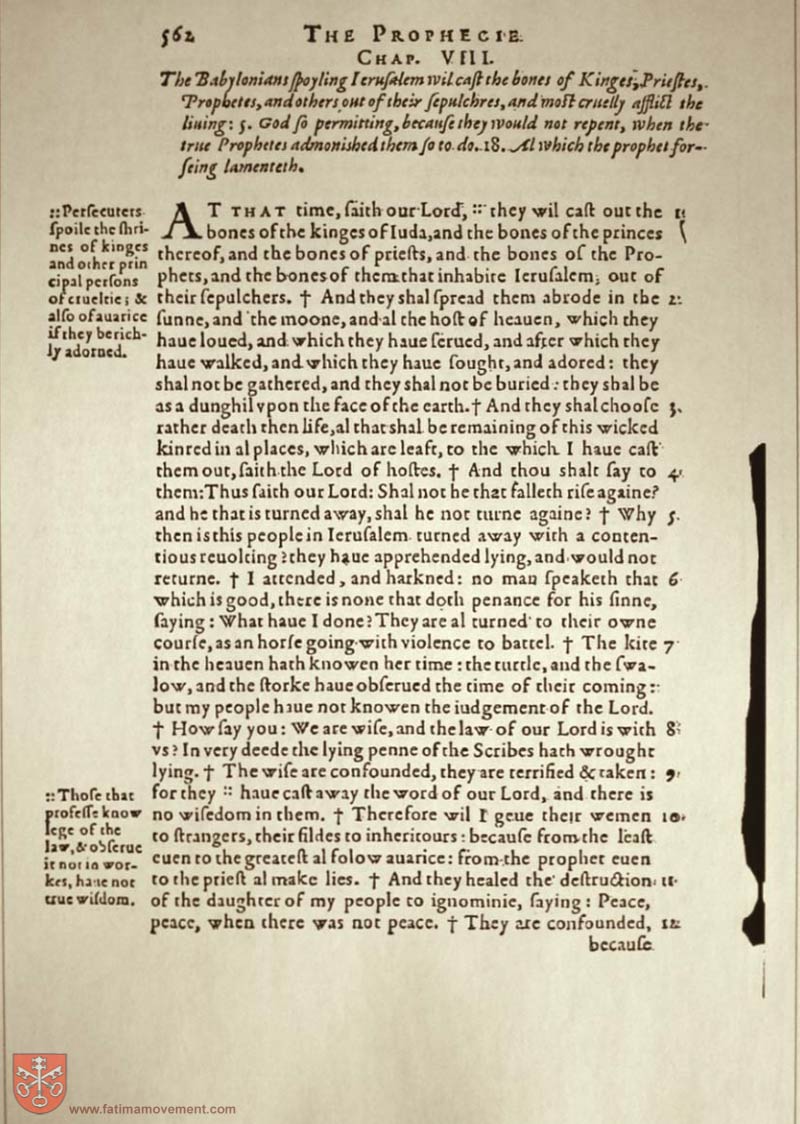 562 THE PROPHECIE.
CHAP. VIII.
The Babylonians ſpoyling Ieruſalem wil caſt the bones of Kinges, Prieſtes,
Prophetes, and others out of their ſepulchres, and moſt cruelly afflict the
liuing: 5. God ſo permitting, becauſe they would not repent, when the
true Prophetes admonished them ſo to do. 18. Al which the prophet for-
ſeing lamenteth.
:: Perſecuters
ſpoile the ſhri-
nes of kinges
and other prin
cipal perſons
of crueltie; &
alſo of auarice
if they be rich-
ly adorned.
AT THAT time, ſaith our Lord, :: they wil caſt out the 1.
bones of the kinges of Iuda, and the bones of the princes
thereof, and the bones of prieſts, and the bones of the Pro-
phets, and the bones of them that inhabite Ieruſalem, out of
their ſepulchers. † And they shal ſpread them abrode in the 2.
ſunne, and the moone, and al the hoſt of heauen, which they
haue loued, and which they haue ſerued, and after which they
haue walked, and which they haue ſought, and adored: they
shal not be gathered, and they shal not be buried: they shal be
as a dunghil vpon the face of the earth. † And they shal chooſe 3.
rather death then life, al that shal be remaining of this wicked
kinred in al places, which are leaft, to the which I haue caſt
them out, ſaith the Lord of hoſtes. † And thou shalt ſay to 4.
them: Thus ſaith our Lord: Shal not he that falleth riſe againe?
and he that is turned away, shal he not turne againe? † Why 5.
then is this people in Ieruſalem turned away with a conten-
tious reuolting? they haue apprehended lying, and would not
returne. † I attended, and harkned: no man ſpeaketh that 6
which is good, there is none that doth penance for his ſinne,
ſaying: What haue I done? They are al turned to their owne
courſe, as an horſe going with violence to battel. † The kite 7
in the heauen hath knowen her time: the turtle, and the ſwa-
low, and the ſtorke haue obſerued the time of their coming:
but my people haue not knowen the iudgement of the Lord.
† How ſay you: We are wiſe, and the law of our Lord is with 8
vs? In very deede the lying penne of the Scribes hath wrought
lying. † The wiſe are confounded, they are terrified & taken: 9.
for they :: haue caſt away the word of our Lord, and there is
no wiſedom in them. † Therefore wil I geue their wemen 10.
to ſtrangers, their fildes to inheritours: becauſe from the leaſt
euen to the greateſt al folow auarice: from the prophet euen
to the prieſt al make lies. † And they healed the deſtruction 11.
of the daughter of my people to ignominie, ſaying: Peace,
peace, when there was not peace. † They are confounded, 12.
becauſe
:: Thoſe that
profeſſe know
lege of the
law, & obſerue
it not in wor-
kes, haue not
true wiſdom.
www.fatimamovement.com